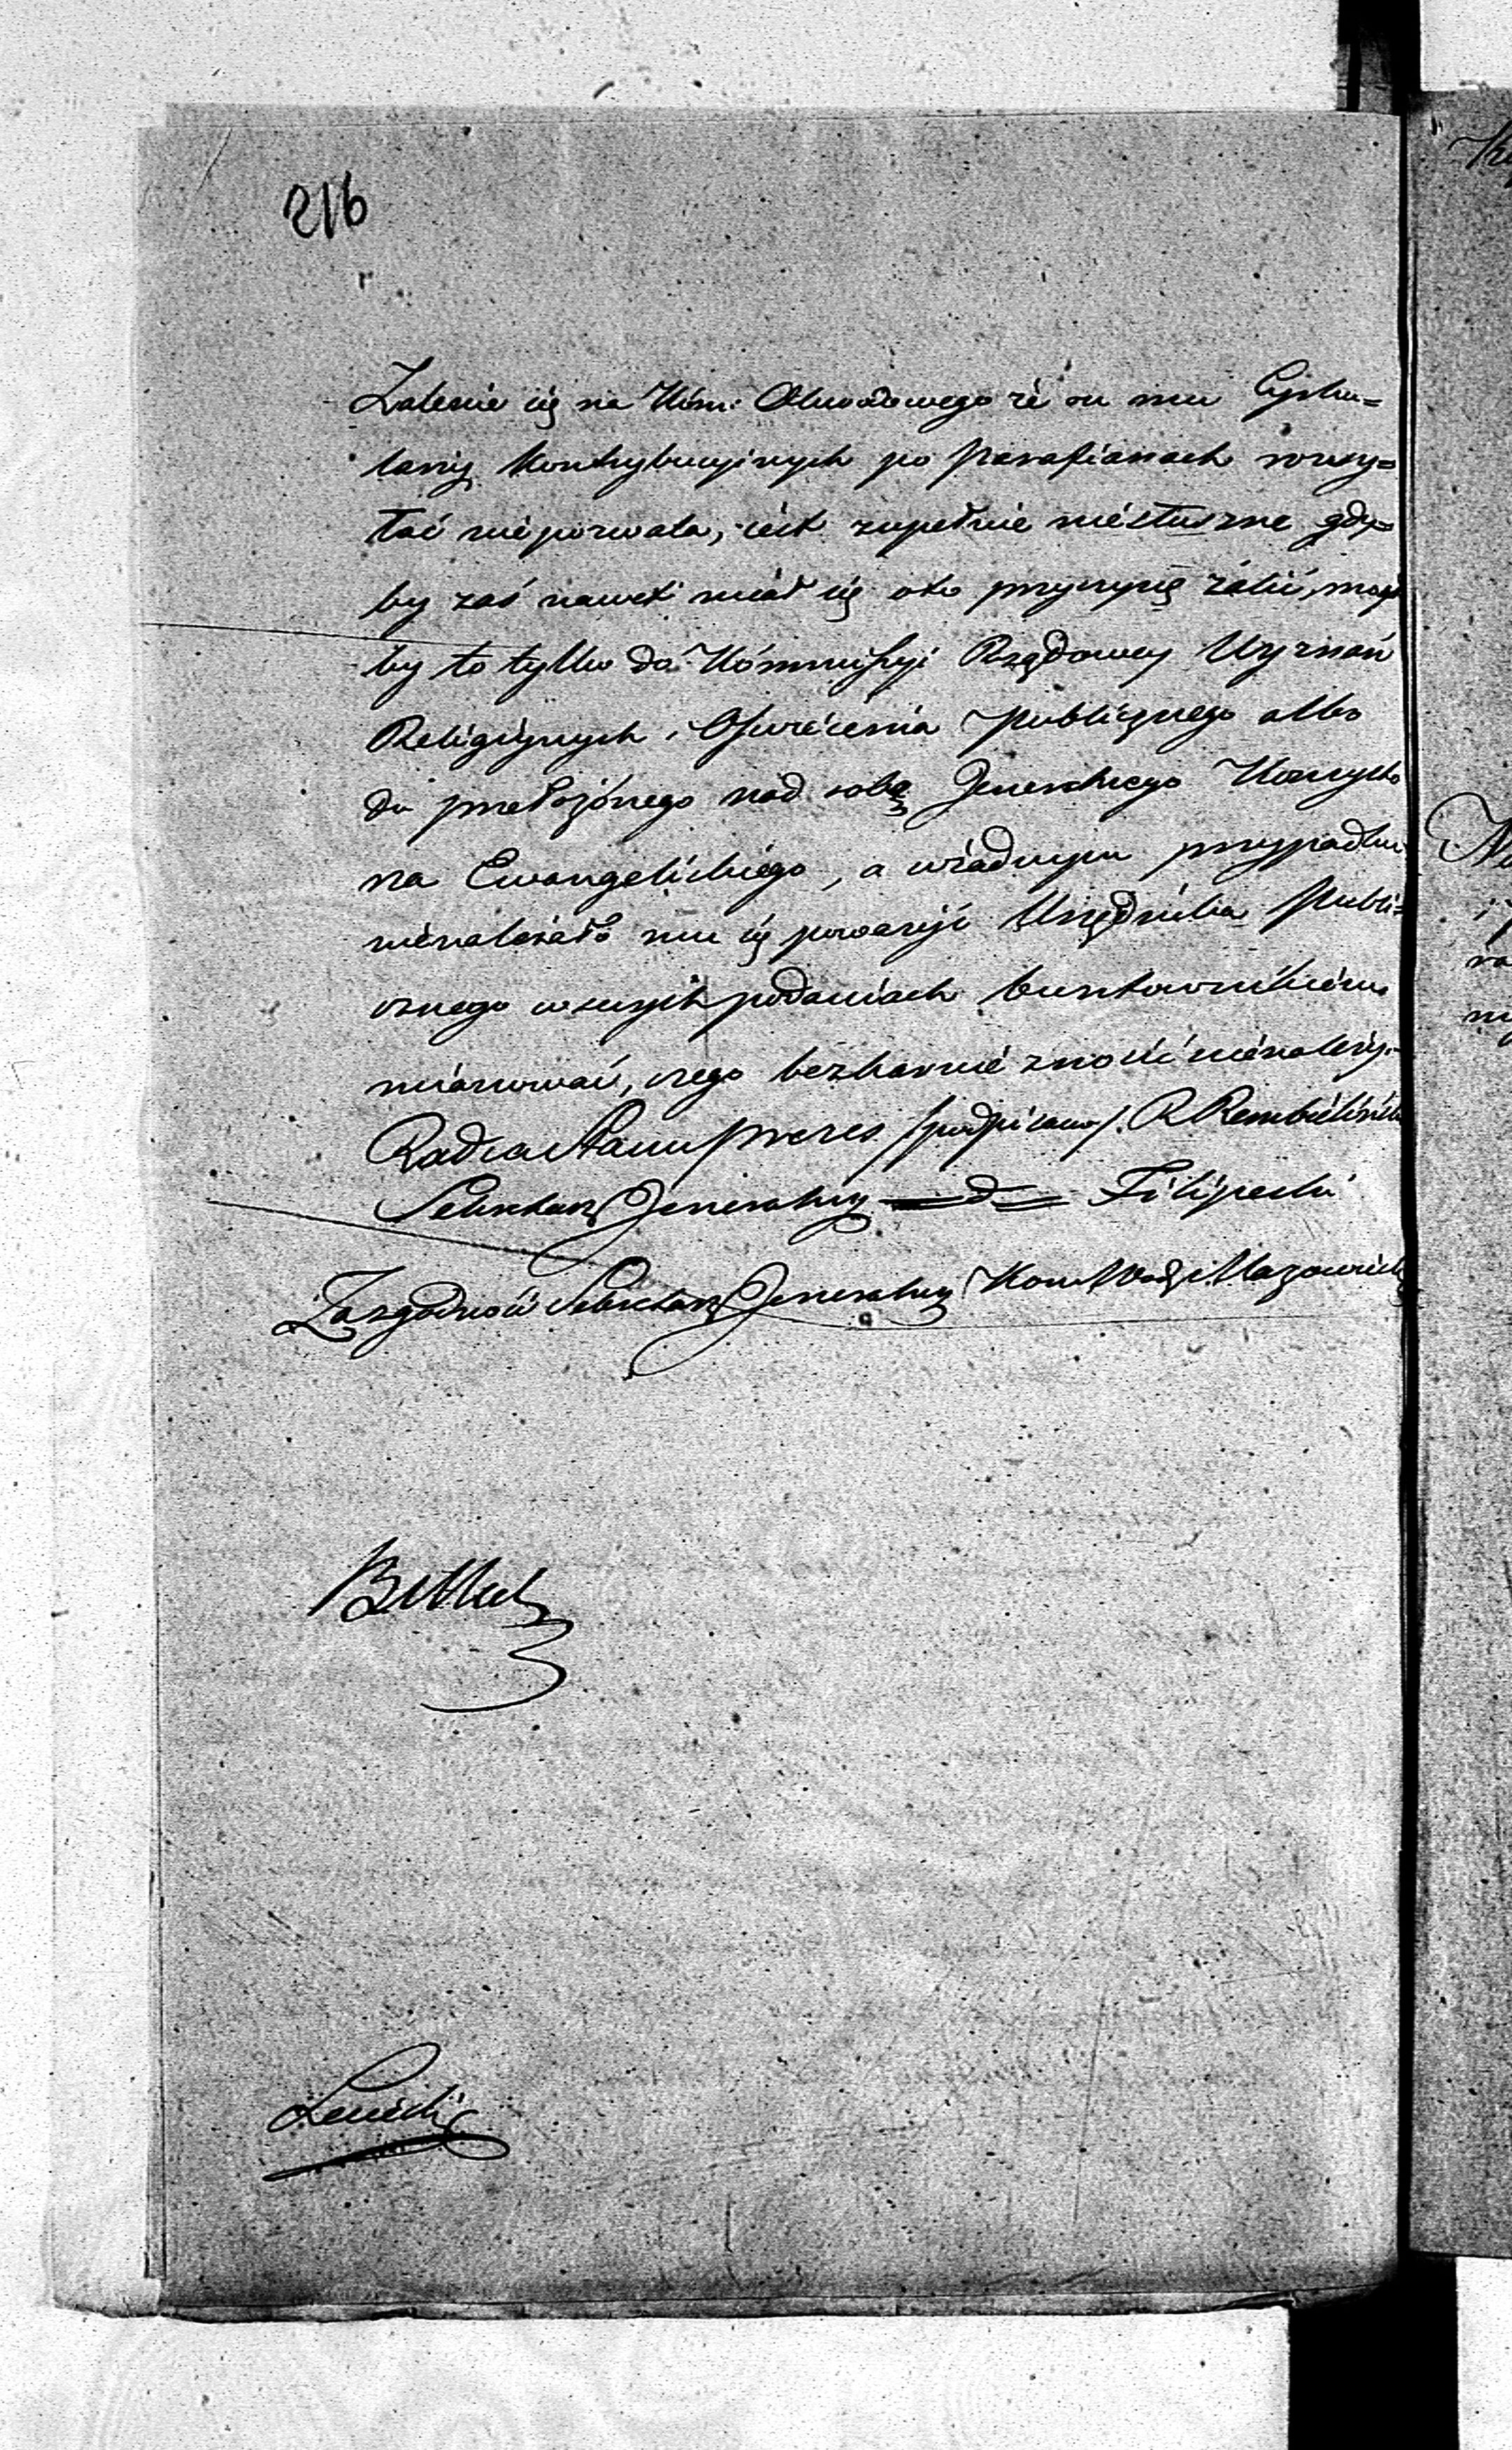 216
Zalenie się na Kom: Obwodowego że on mu Cyrku=
larzy Kontrybucyinych po parafianach rozsy=
łać niepozwala, iest zupełnie niesłuszne, gdy=
by zaś nawet miał się oto przyczynę żalić, mógł
by to tylko do Kommissyi Rządowey Wyznań
Religiynych i Oświecenia Publicznego albo
do przełożónego nad sobą Jeneralnego Konsysto
na Ewangelickiego, a wżadnym przypadku
nienależało mu się poważyć Urzędnika Publi=
cznego wswych podaniach buntownikiem
mianować, czego bezkarnie znosić nienależy.
Radca Stanu Prezes /podpisano/ R Rembieliński
Sekretarz Jeneralny = d = Filipecki
Za zgodność Sekretarz Jeneralny Kom Wodz Mazowieck